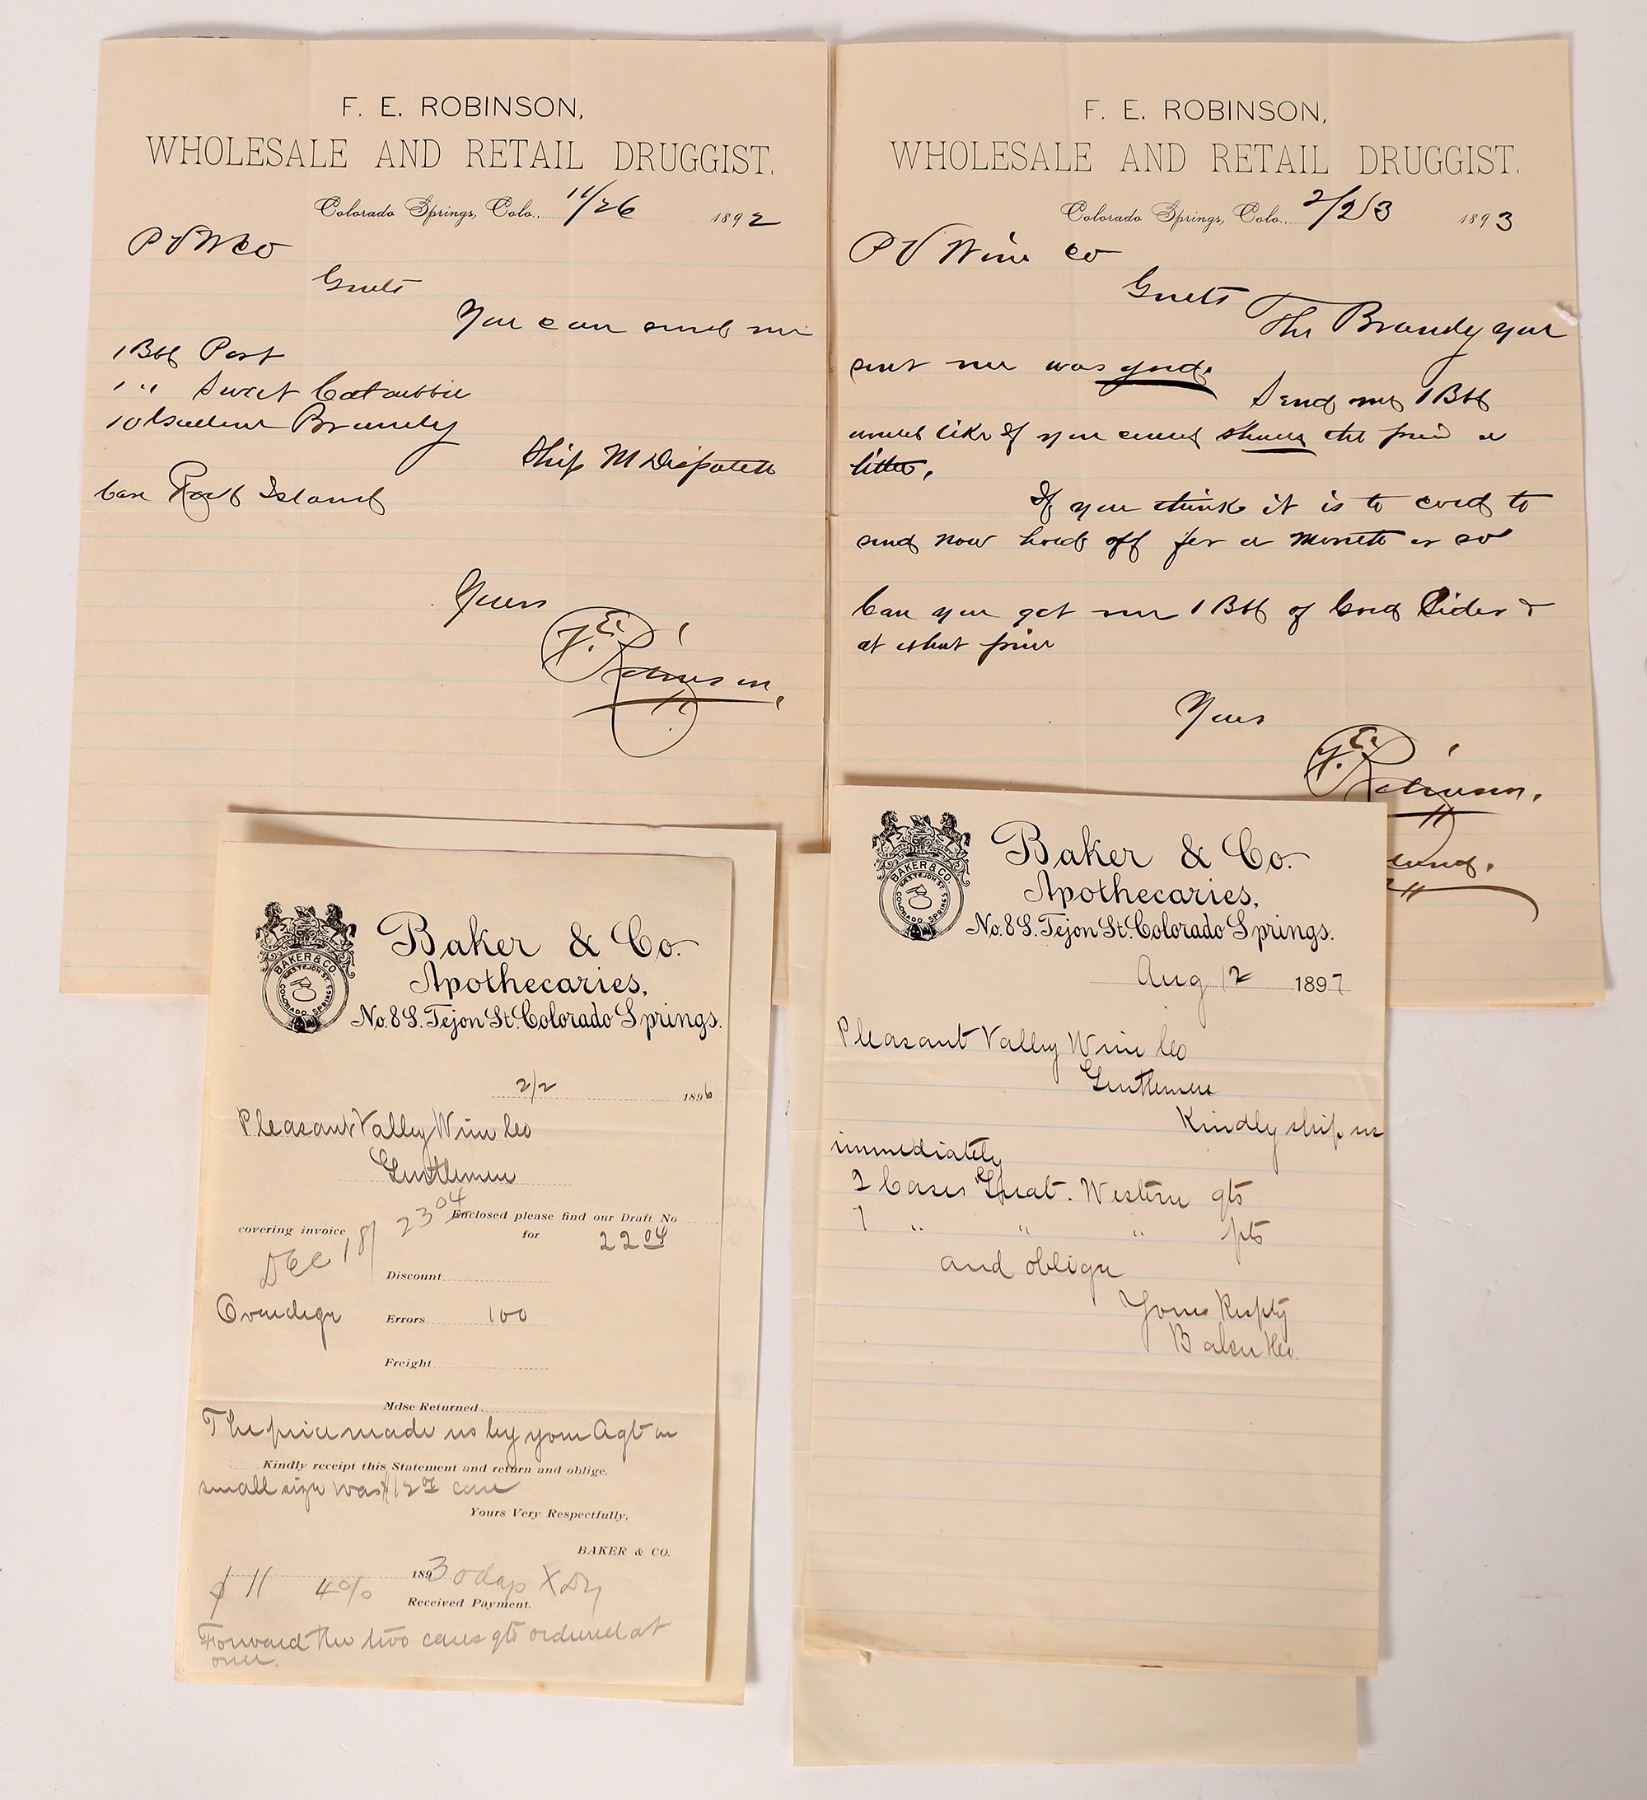 F. E. ROBINSON,
WHOLESALE AND RETAIL DRUGGIST.
Colorado Springs, Colo., 11/26 1892
P V W Co
Gents
You can send me
1 Bbl Port
1 " Sweet Catawba
10 Gallons Brandy
Ship M Dispatch
Care Rock Island
Yours
F. E. Robinson.
F. E. ROBINSON,
WHOLESALE AND RETAIL DRUGGIST.
Colorado Springs, Colo., 2/23 1893
P V Wine Co
Gents
The Brandy you
sent me was good.
Send me 1 Bbl
would like if you could shave the price a
little.
If you think it is to cold to
send now hold off for a month or so
Can you get me 1 Bbl of Good Cider &
at what price
Yours
F. E. Robinson.
BAKER & CO.
COLORADO SPRINGS
Baker & Co.
Apothecaries,
No. 8 S. Tejon St. Colorado Springs.
2/2 1896
Pleasant Valley Wine Co
Gentlemen
2304
Enclosed please find our Draft No
covering invoice Dec 18/ for 22 04
Discount
Overchge Errors 100
Freight
Mdse Returned
The price made us by your Agt on
Kindly receipt this Statement and return and oblige.
small size was case
Yours Very Respectfully,
BAKER & CO.
189
$11 4% 30 days
Received Payment.
Forward the two cases qts ordered at
once.
BAKER & CO.
COLORADO SPRINGS
Baker & Co.
Apothecaries,
No. 8 S. Tejon St. Colorado Springs.
Aug 12 1897
Pleasant Valley Wine Co
Gentlemen
Kindly ship us
immediately
2 Cases Great Western qts
1 " " " pts
and oblige
Yours Respty
Baker & Co.